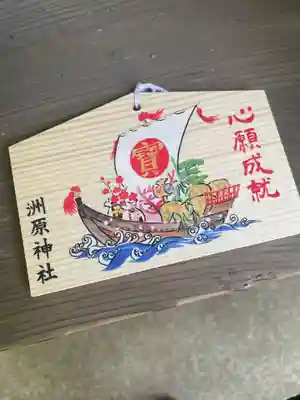 心願成就
寶
洲原神社